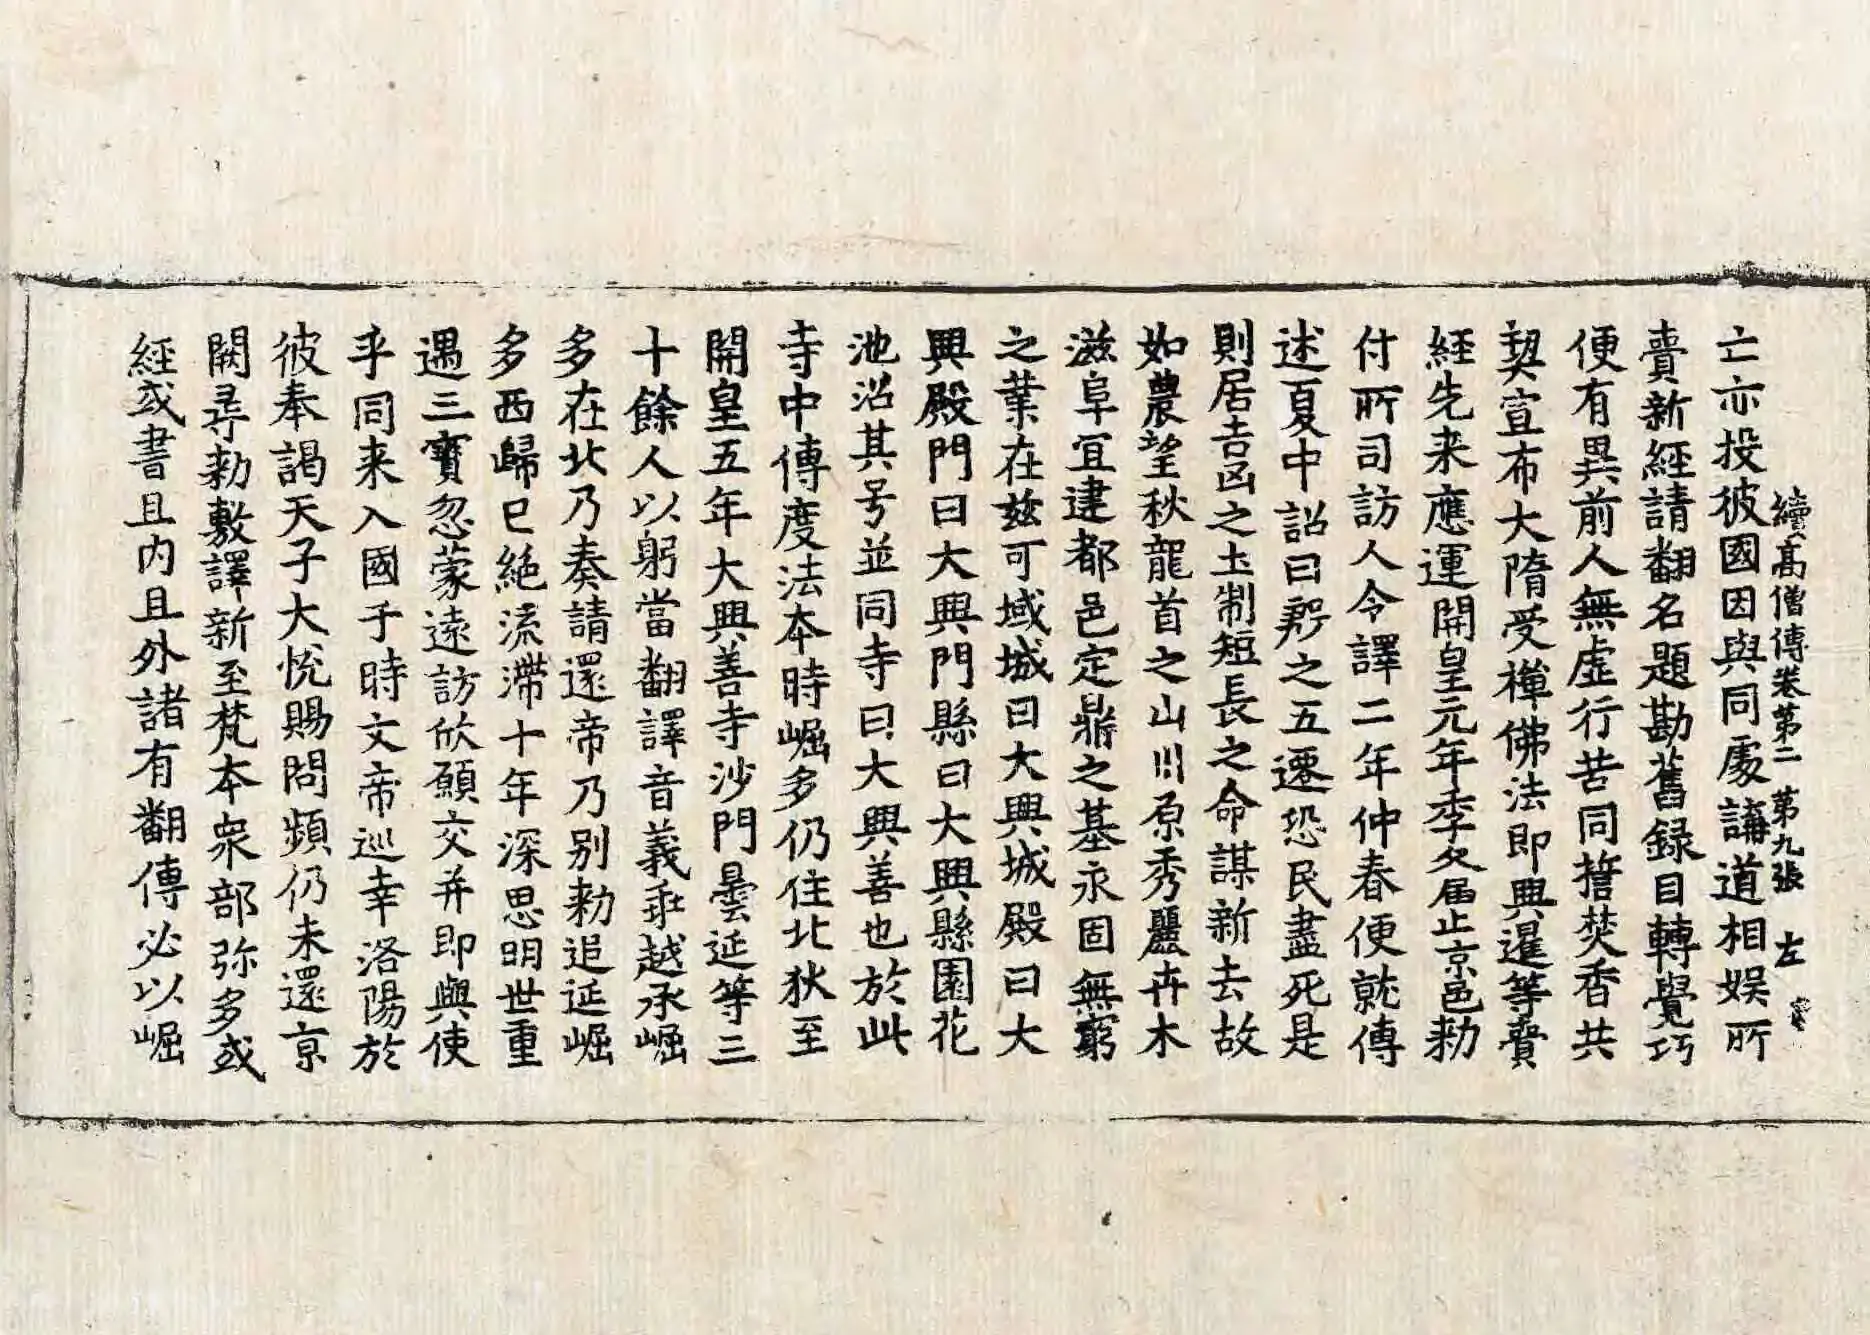 續高僧傳卷第二 第九張 左
亡亦投彼國因與同處講道相娛所
賷新經請翻名題勘舊錄目轉覺巧
便有異前人無虛行苦同擔焚香共
契宣布大隋受禪佛法即興暹等賷
經先来應運開皇元年季冬届止京邑勑
付所司訪人令譯二年仲春便就傳
述夏中詔曰殷之五遷恐民盡死是
則居吉凶之土制短長之命謀新去故
如農望秋龍首之山川原秀麗卉木
滋阜宜建都邑定鼎之基永固無窮
之業在茲可域城曰大興城殿曰大
興殿門曰大興門縣曰大興縣園花
池沼其号並同寺曰大興善也於此
寺中傳度法本時崛多仍住北狄至
開皇五年大興善寺沙門曇延等三
十餘人以躬當翻譯音義乖越承崛
多在北乃奏請還帝乃别勑追延崛
多西歸已絶流滯十年深思明世重
遇三寶忽蒙遠訪欣願交并即與使
乎同来入國于時文帝巡幸洛陽於
彼奉謁天子大悅賜問頻仍未還京
闕尋勑敷譯新至梵本衆部弥多或
經或書且内且外諸有翻傳必以崛